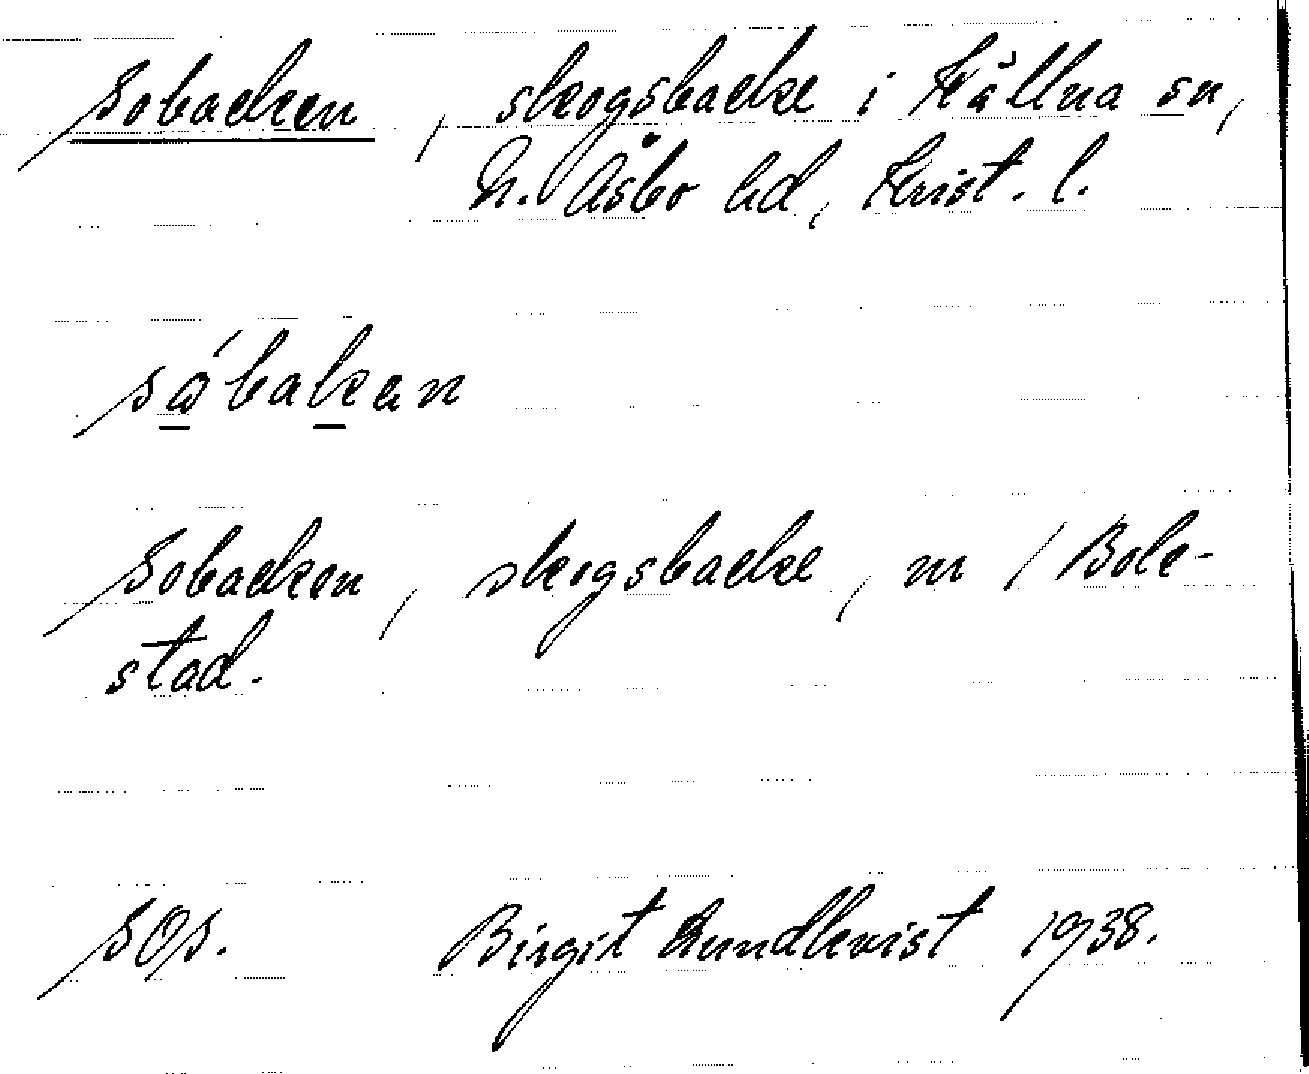 Sobacken, skogsbacke i Källna sn,
N. Åsbo hd, Krist. l.
Sobacken, skogsbacke, m / Bole-
stad.
SOS. Birgit Rundkvist 1938.